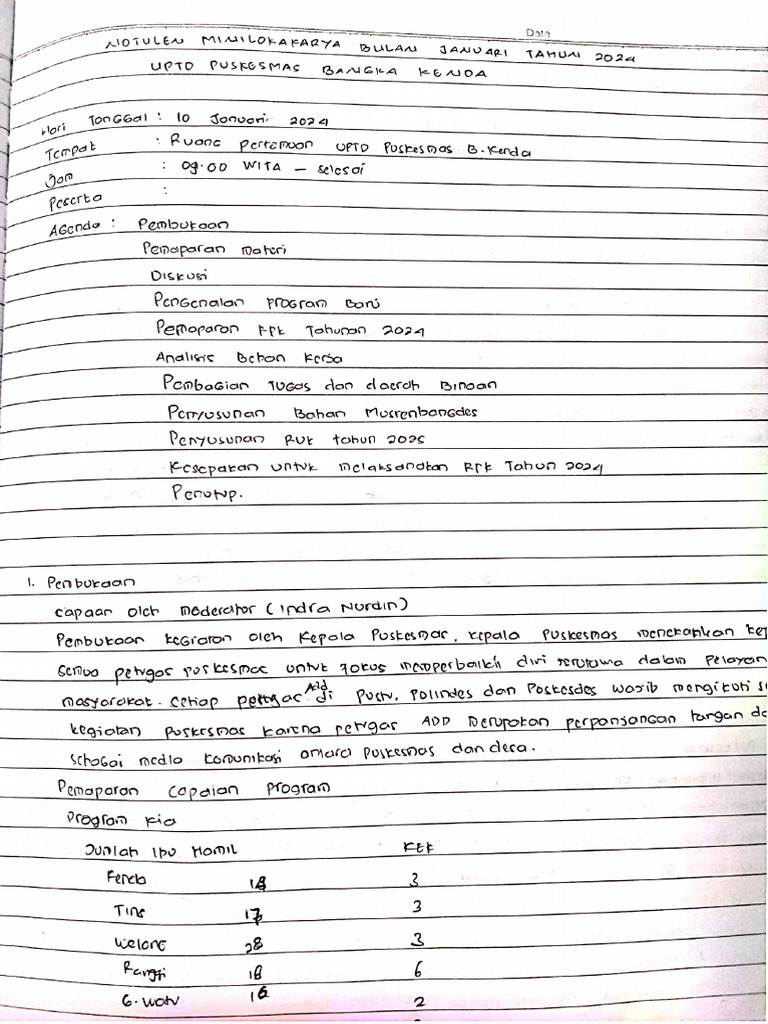 Date
NOTULEN MINILOKAKARYA BULAN JANUARI TAHUN 2024
UPTD PUSKESMAS BANGKA KENDA
Hari Tanggal : 10 Januari 2024
Tempat : Ruang Pertemuan UPTD Puskesmas B. Kenda
Jam : 09.00 WITA - selesai
Peserta :
Agenda : Pembukaan
Pemaparan materi
Diskusi
Pengenalan program baru
Pemaparan RPK Tahunan 2024
Analisis Beban Kerja
Pembagian Tugas dan daerah Binaan
Penyusunan Bahan Musrenbangdes
Penyusunan RUK tahun 2025
Kesepakan untuk melaksanakan RPK Tahun 2024
Penutup.
1. Pembukaan
Sapaan oleh moderator (Indra Nurdin)
Pembukaan kegiatan oleh Kepala Puskesmas, kepala puskesmas menekankan kep
semua petugas puskesmas untuk fokus memperbaiki diri terutama dalam pelayan
masyarakat. Setiap petugas Add di Pustu, Polindes dan Poskesdes wajib mengikuti s
kegiatan puskesmas karena petugas ADD merupakan perpanjangan tangan da
sebagai media komunikasi antara puskesmas dan desa.
Pemaparan capaian program
Program KIA
Jumlah Ibu Hamil KEK
Kenda 3
Ting 17 3
Welong 28 3
Ranggi 18 6
G. Watu 16 2